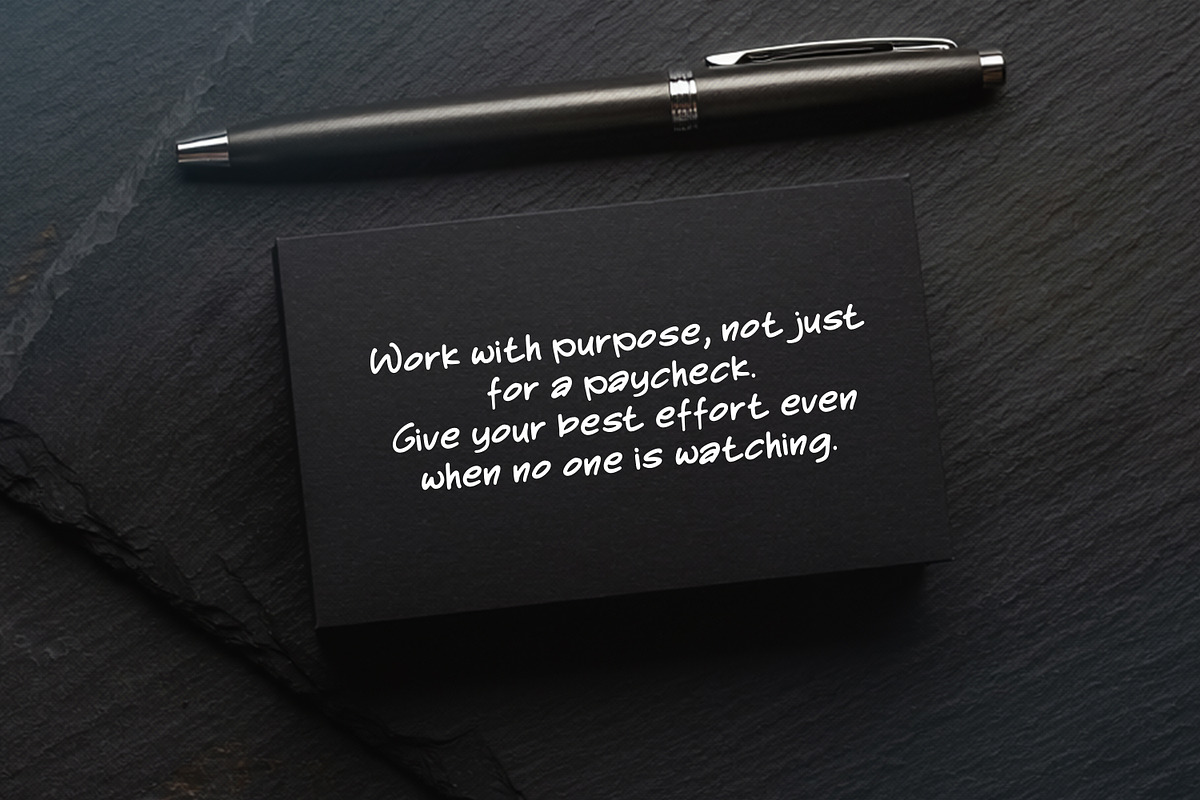 Work with purpose, not just
for a paycheck.
Give your best effort even
when no one is watching.